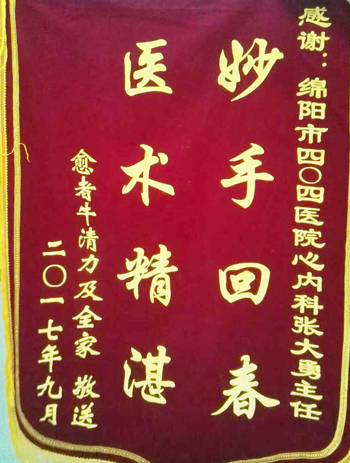 感谢：绵阳市四〇四医院心内科张大勇主任
妙手回春
医术精湛
愈者牛清力及全家 敬送
二〇一七年九月